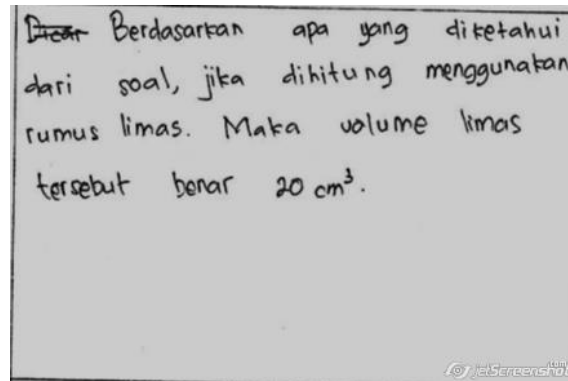 Berdasarkan apa yang diketahui
dari soal, jika dihitung menggunakan
rumus limas. Maka volume limas
tersebut benar 20 cm³.
jetScreenshot
.com